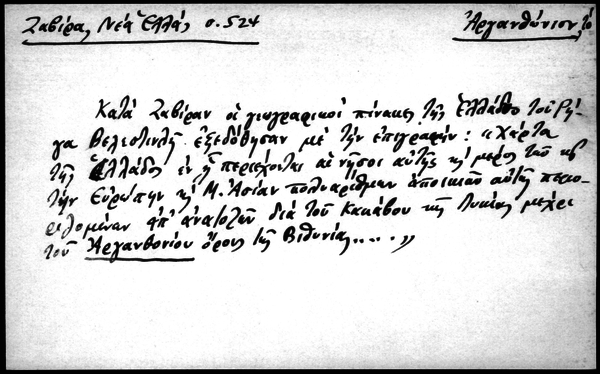 Ζαβίρα, Νέα Ἑλλάς σ. 524
Ἀργανθώνιον, τό
Κατά Ζαβίραν οἱ γεωγραφικοί πίνακες τῆς Ἑλλάδος τοῦ Ρή-
γα Βελεστινλῆ ἐξεδόθησαν μέ τήν ἐπιγραφήν: "Χάρτα
τῆς Ἑλλάδος ἐν ᾗ περιέχονται αἱ νῆσοι αὐτῆς κ μέρος τῶν εἰς
τήν Εὐρώπην κ Μ. Ἀσίαν πολυαρίθμων ἀποικιῶν αὐτῆς περιο-
ριζομένων ἀπ' ἀνατολῶν διά τοῦ Κακάβου τῆς Λυκίας μέχρι
τοῦ Ἀργανθονίου ὄρους τῆς Βιθυνίας....."